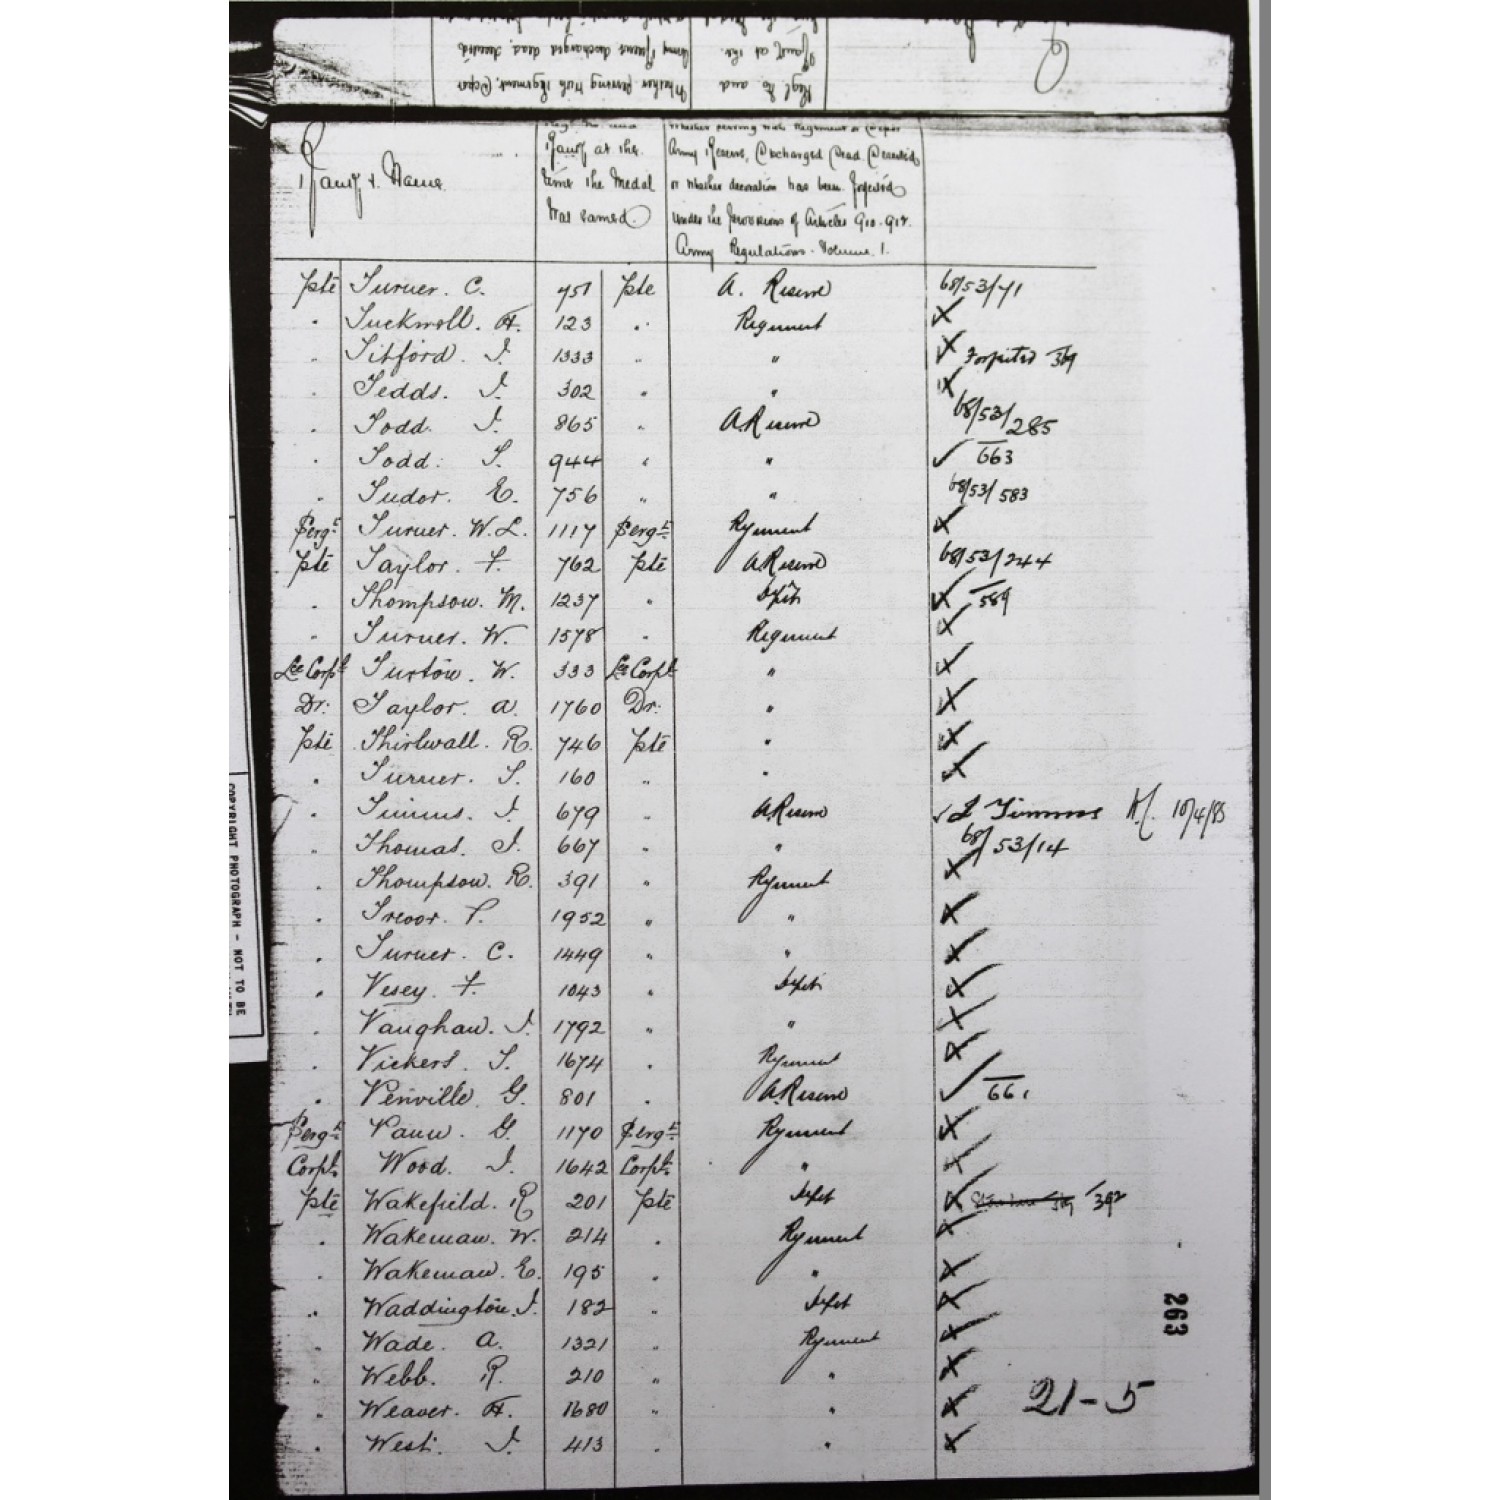 Regl No and
Rank at the
Whether serving with Regiment, Depot
Army Reserve discharged dead. Deserted
Rank & Name
Rank at the
time the Medal
was earned.
Whether serving with Regiment or Depot
Army Reserve, Discharged Dead. Deserted
or whether decoration has been forfeited
under the provisions of Articles 910-917.
Army Regulations. Volume 1.
Pte Turner. C. 751 Pte A. Reserve 68/53/71
" Tuckwell. H. 123 " Regiment
" Titford. J. 1333 " " Forfeited 369
" Tedds. J. 302 " "
" Todd. J. 865 " A. Reserve 68/53/285
" Todd. T. 944 " " 663
" Tudor. E. 756 " " 68/53/583
Sergt Turner. W. L. 1117 Sergt Regiment
Pte Taylor. F. 762 Pte A. Reserve 68/53/244
" Thompson. M. 1237 " Depot 589
" Turner. W. 1578 " Regiment
Lce Corpl Turton. W. 333 Lce Corpl "
Dr: Taylor. A. 1760 Dr: "
Pte Thirlwall. R. 746 Pte "
" Turner. T. 160 " "
" Timms. J. 679 " A. Reserve J Timms 10/4/83
" Thomas. J. 667 " " 68/53/14
" Thompson. R. 391 " Regiment
" Trevor. P. 1952 " "
" Turner. C. 1449 " "
" Vesey. F. 1043 " Depot
" Vaughan. J. 1792 " "
" Vickers. T. 1674 " Regiment
" Venville. G. 801 " A. Reserve 661
Sergt Vann. G. 1170 Sergt Regiment
Corpl Wood. J. 1642 Corpl "
Pte Wakefield. R 201 Pte Depot 392
" Wakeman. W. 214 " Regiment
" Wakeman. E. 195 " "
" Waddington. J. 182 " Depot
" Wade. A. 1321 " Regiment
" Webb. R. 210 " "
" Weaver. H. 1680 " "
" West. J. 413 " "
21-5
263
COPYRIGHT PHOTOGRAPH - NOT TO BE